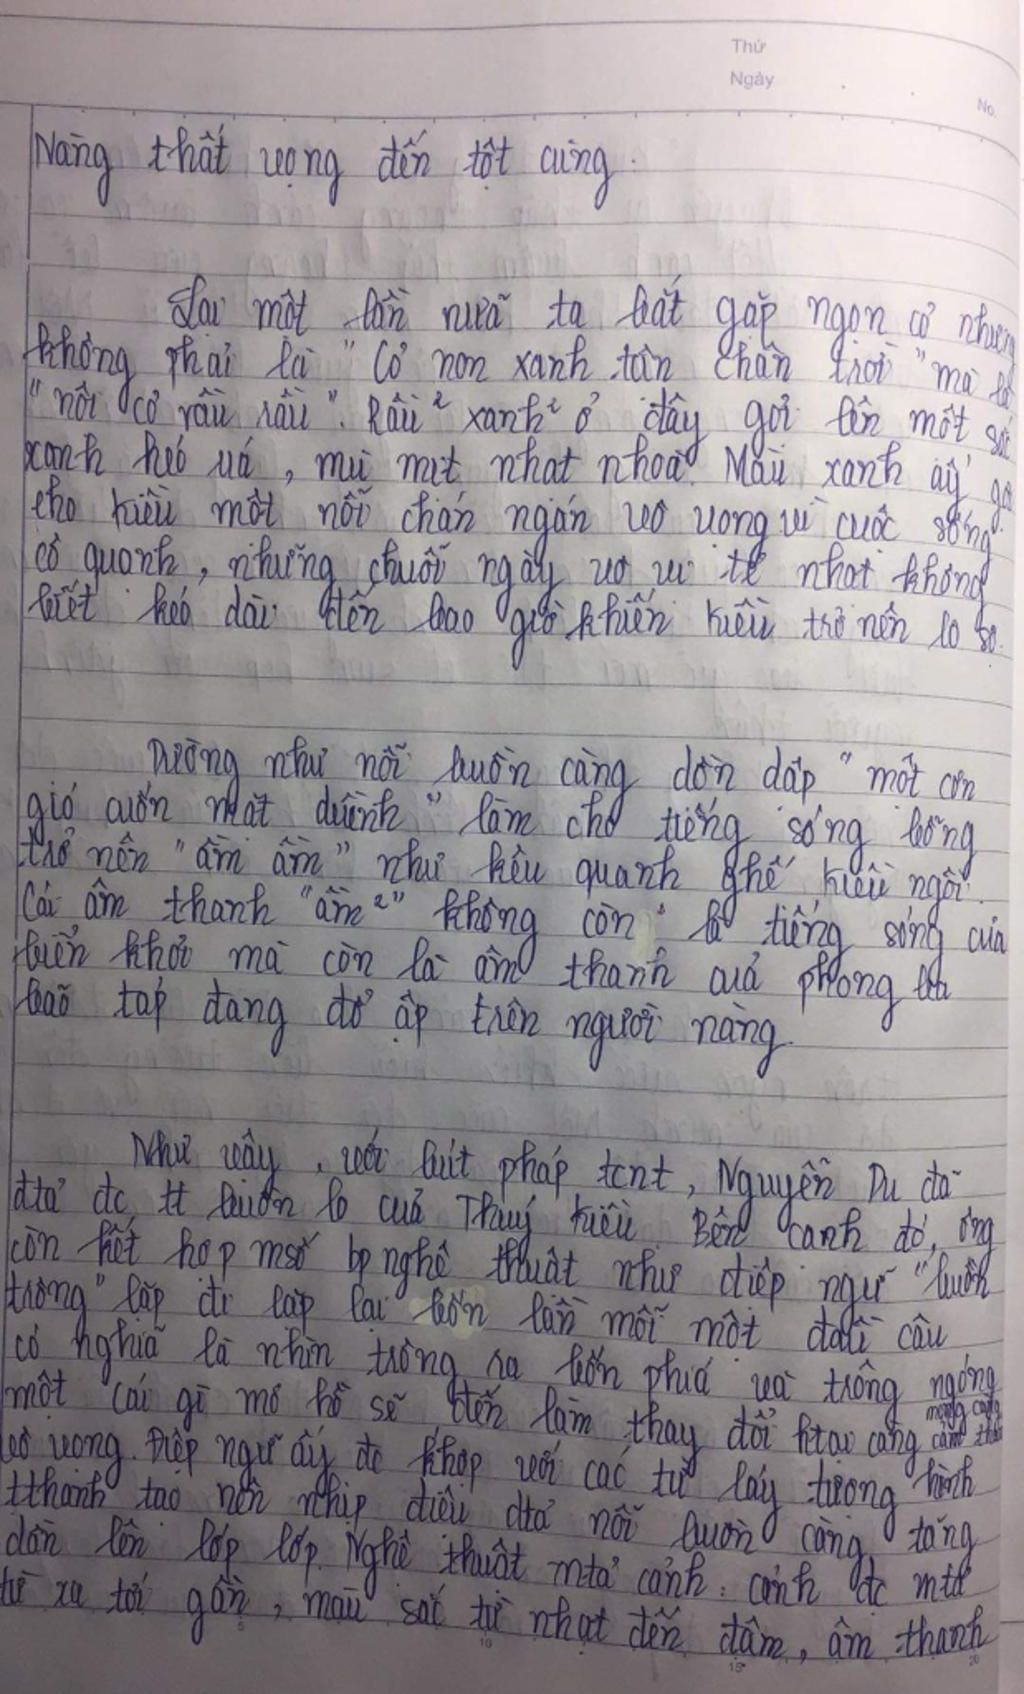 Thứ
Ngày
No.
Nàng thất vọng đến tột cùng.
Lại một lần nữa ta bắt gặp ngọn cỏ nhưng
không phải là "Cỏ non xanh tận chân trời" mà là
"nội cỏ rầu rầu". Rầu² xanh² ở đây gợi lên một sắc
xanh héo úa, mù mịt nhạt nhoà. Màu xanh ấy gợi
cho Kiều một nỗi chán ngán vô vọng vì cuộc sống
cô quạnh, những chuỗi ngày vô vị tẻ nhạt không
biết kéo dài đến bao giờ khiến Kiều trở nên lo sợ.
Dường như nỗi buồn càng dồn dập "một cơn
gió cuốn mặt duềnh" làm cho tiếng sóng bỗng
trở nên "ầm ầm" như kêu quanh ghế Kiều ngồi.
Cái âm thanh "ầm²" không còn là tiếng sóng của
biển khơi mà còn là âm thanh của phong ba
bão táp đang đổ ập trên người nàng.
Như vậy, với bút pháp tcnt, Nguyễn Du đã
dtả đc tt buồn lo của Thuý Kiều. Bên cạnh đó, ông
còn kết hợp msố bp nghệ thuật như điệp ngữ "buồn
trông" lặp đi lặp lại bốn lần mỗi một đầu câu
có nghĩa là nhìn trông ra bốn phía và trông ngóng
một cái gì mơ hồ sẽ đến làm thay đổi htại càng
mong càng
cảm thấy
vô vọng. Điệp ngữ ấy đc khợp với các từ láy tượng hình
tthanh tạo nên nhịp điệu dtả nỗi buồn càng tăng
dần lên lớp lớp. Nghệ thuật mtả cảnh: cảnh đc mtả
từ xa tới gần, màu sắc từ nhạt đến đậm, âm thanh
5
10
15
20